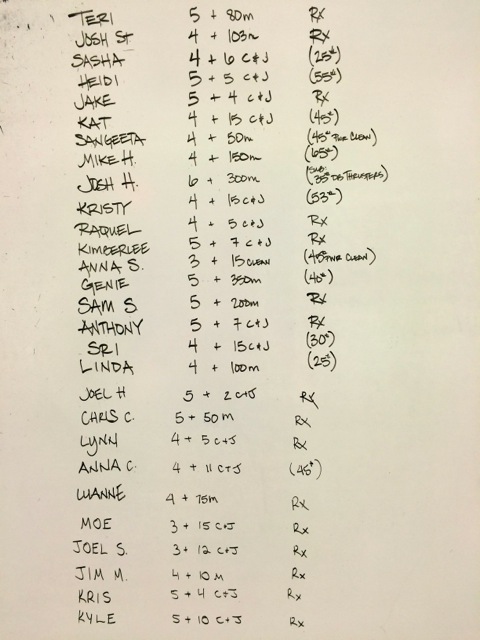 TERI 5 + 80m Rx
JOSH St 4 + 103m Rx
SASHA 4 + 6 C+J (25#)
HEIDI 5 + 5 C+J (55#)
JAKE 5 + 4 C+J Rx
KAT 4 + 15 C+J (45#)
SANGEETA 4 + 50m (45# PWR CLEAN)
MIKE H. 4 + 150m (65#)
JOSH H. 6 + 300m (SUB: 35# DB THRUSTERS)
KRISTY 4 + 15 C+J (53#)
RAQUEL 4 + 5 C+J Rx
KIMBERLEE 5 + 7 C+J Rx
ANNA S. 3 + 15 CLEAN (45# PWR CLEAN)
GENIE 5 + 350m (40#)
SAM S. 5 + 200m Rx
ANTHONY 5 + 7 C+J Rx
SRI 4 + 15 C+J (30#)
LINDA 4 + 100m (25#)
JOEL H 5 + 2 C+J Rx
CHRIS C. 5 + 50 m Rx
LYNN 4 + 5 C+J Rx
ANNA C. 4 + 11 C+J (45#)
LUANNE 4 + 75m Rx
MOE 3 + 15 C+J Rx
JOEL S. 3 + 12 C+J Rx
JIM M. 4 + 10 M Rx
KRIS 5 + 4 C+J Rx
KYLE 5 + 10 C+J Rx